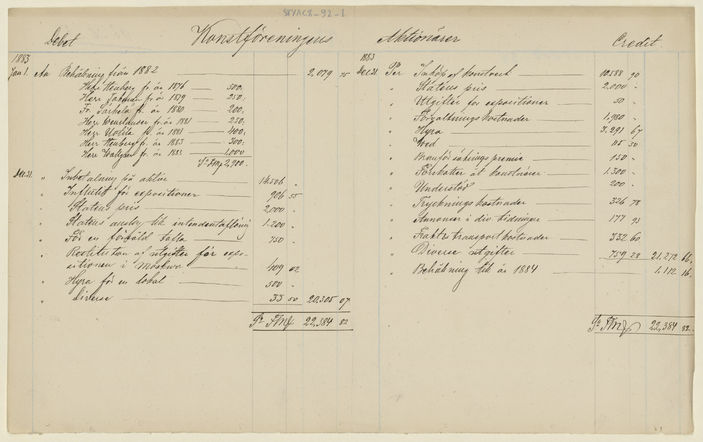 SKYAC8-92-1
Debet Konstföreningens Aktionärer Credit
1883
Jan 1. An Behållning från 1882 2,079 75
Herr Nenberg fr. år 1876 500.
Herr Fahmer fr. år 1879 250.
fr. år 1880 200.
fr. år 1881 250.
Herr fr. år 1881 400.
Herr Nenberg fr. år 1883 300.
Herr fr. år 1883 1,000
S:a Fmk 2,900.
Dec 31. " Inbetalning på aktier 14,506 "
" Influtit för expositioner 906 55
" Statens pris 2,000 "
" Statens till 1,200 "
" För en tafla 750 "
" Restitution af utgifter för expo-
sitionen i Moskwa 409 02
" Hyra för en lokal 500 "
" Diverse 33 50 20,305 07
S:a Fmk 22,384 82
1883
Dec 31. Per Inköp af konstverk 10588 90
" Statens pris 2,000 "
" Utgifter för expositioner 50 "
" Förvaltningskostnader 1,980 "
" Hyra 3,291 67
" Ved 115 50
" Brandförsäkrings premie 150 "
" Förskotter åt konstnärer 1.300 "
" Understöd 200 "
" Tryckningskostnader 326 78
" Annoncer i div. tidningar 177 95
" Frakt & transportkostnader 332 60
" Diverse utgifter 759 28 21,272 66
" Behållning till år 1884 1,112 16
S:a Fmk 22,384 82